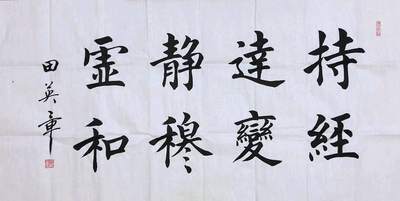 持經
達變
静穆
虛和
田英章